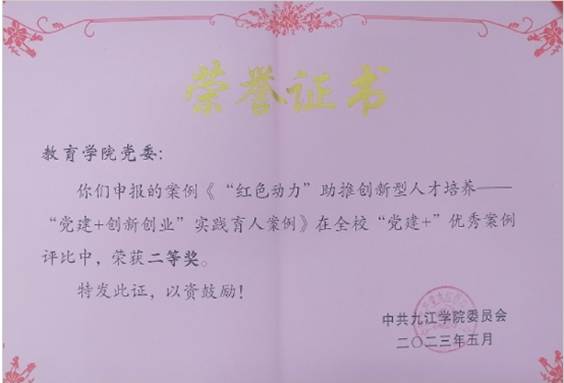 荣誉证书
教育学院党委：
你们申报的案例《“红色动力”助推创新型人才培养——
“党建+创新创业”实践育人案例》在全校“党建+”优秀案例
评比中，荣获二等奖。
特发此证，以资鼓励！
中共九江学院委员会
二〇二三年五月